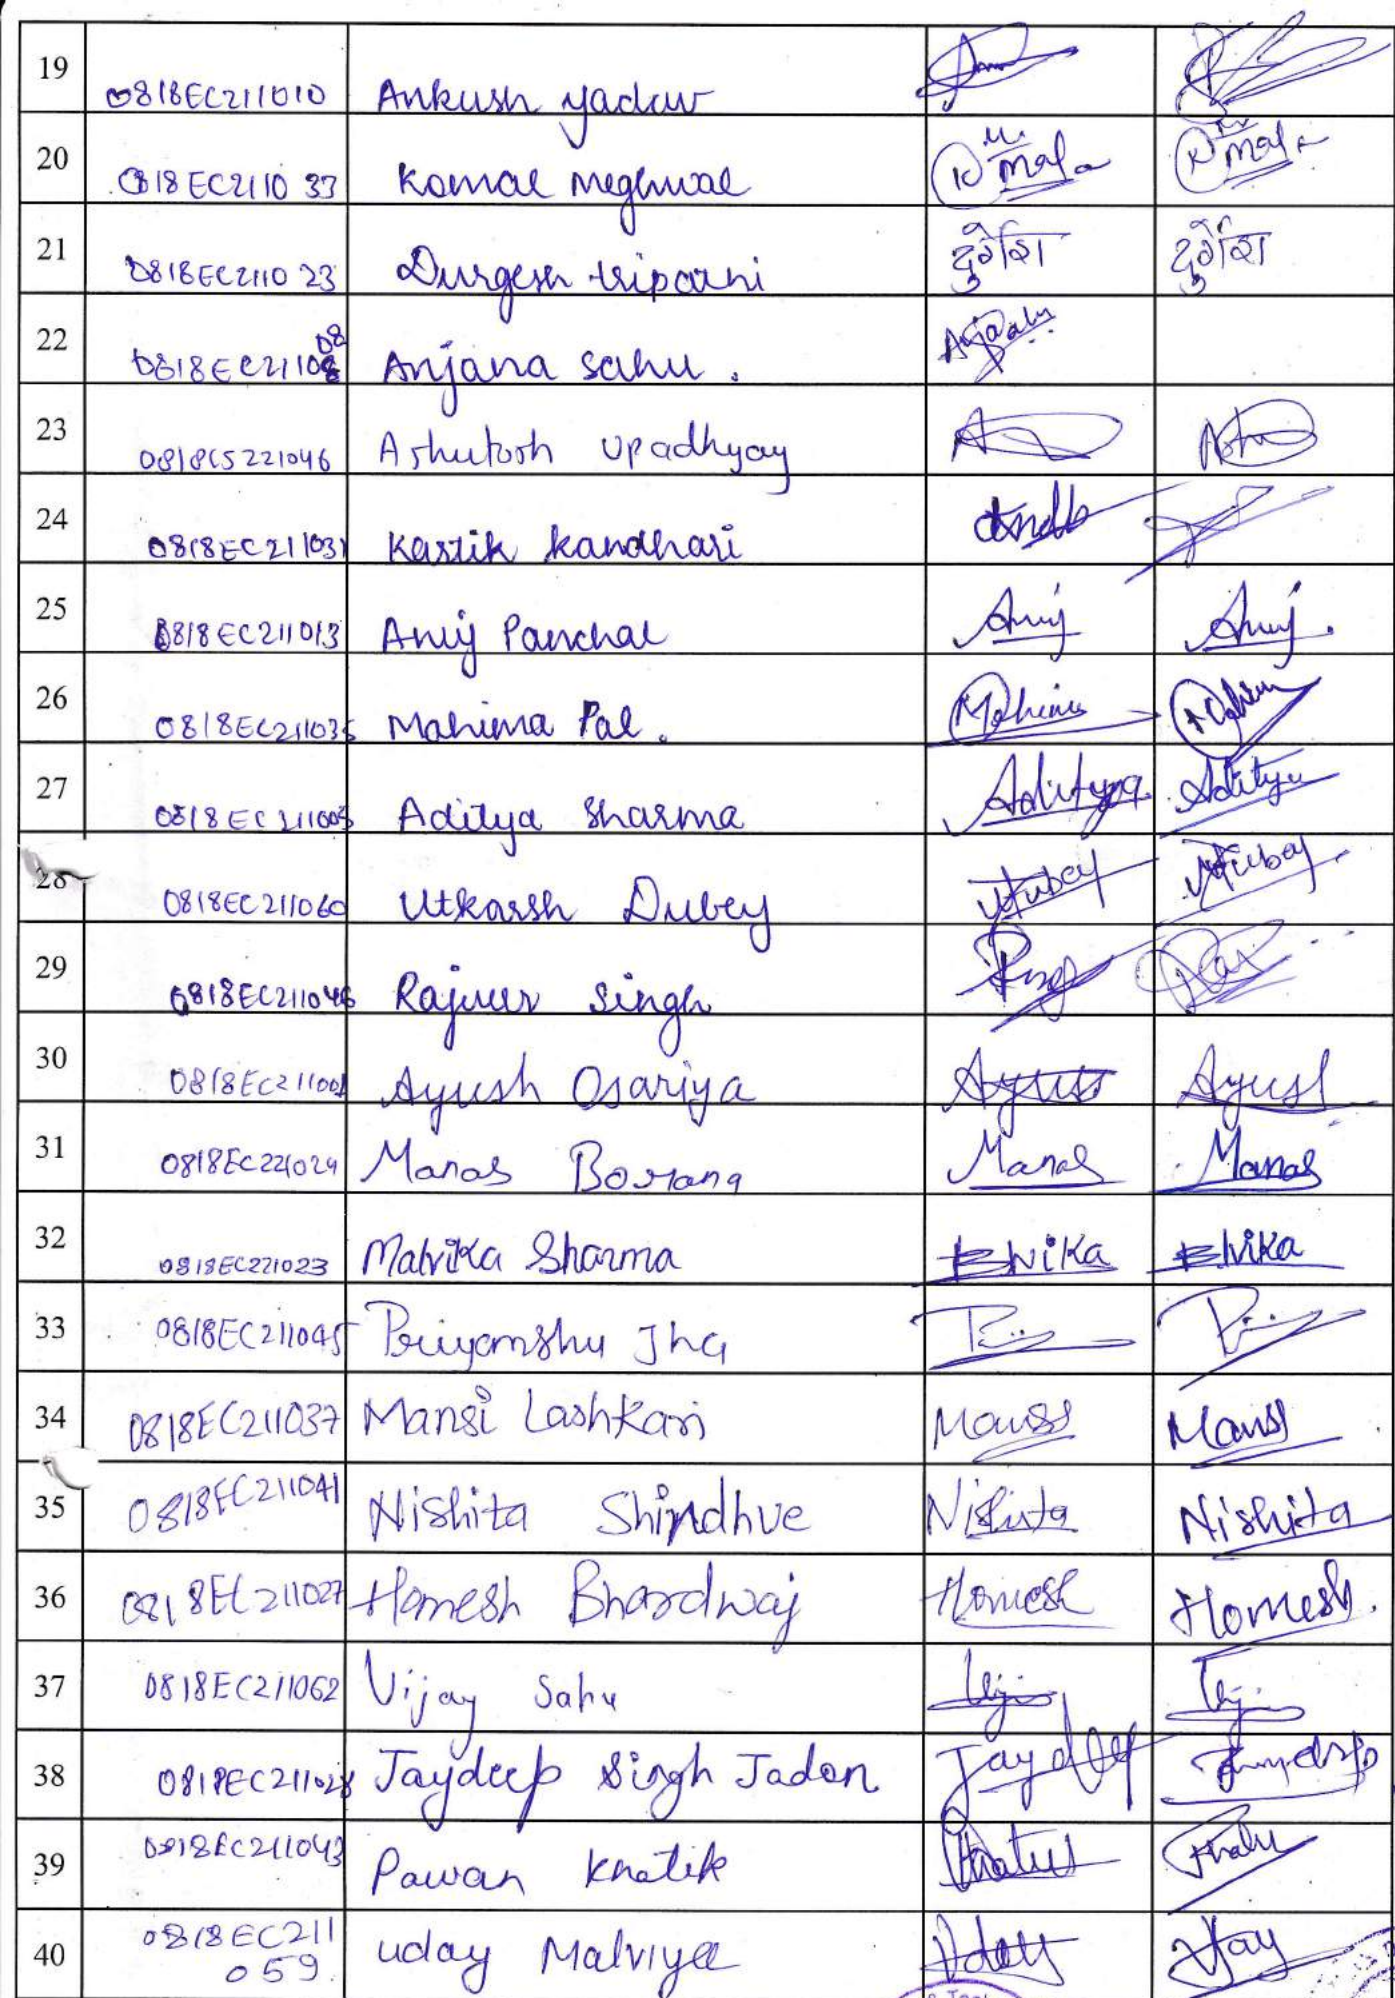 19 0818EC211010 Ankush yadav
20 0818EC211033 Komal meghwal
21 0818EC211023 Durgesh tripathi दुर्गेश दुर्गेश
22 0818EC211008 Anjana sahu.
23 0818CS221046 Ashutosh Upadhyay
24 0818EC211031 Kartik kandhari
25 0818EC211013 Anuj Panchal Anuj Anuj.
26 0818EC211035 Mahima Pal. Mahima
27 0818EC211005 Aditya Sharma Aditya Aditya
28 0818EC211060 Utkarsh Dubey
29 0818EC211046 Rajveer Singh
30 0818EC211001 Ayush Osariya Ayush Ayush
31 0818EC221024 Manas Borana Manas Manas
32 0818EC221023 Malvika Sharma
33 0818EC211045 Priyamshu Jha
34 0818EC211037 Mansi Lashkari Mansi Mansi
35 0818EC211041 Nishita Shindhve Nishita Nishita
36 0818EC211027 Homesh Bhardwaj Homesh Homesh.
37 0818EC211062 Vijay Sahu
38 0818EC211028 Jaydeep Singh Jadon Jaydeep
39 0818EC211043 Pawan Khatik
40 0818EC211 uday Malviya Uday
059